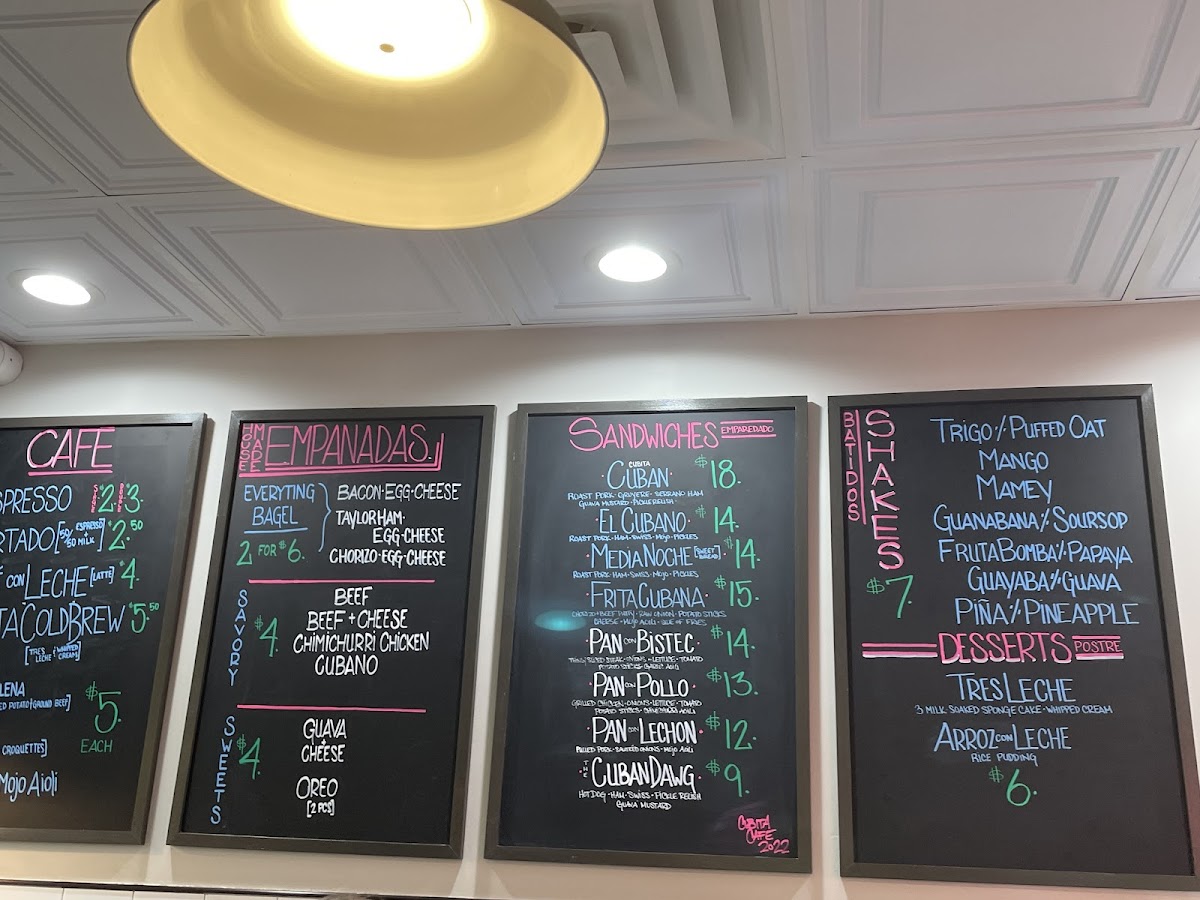 CAFE
SPRESSO SINGLE $2. DOUBLE $3.
RTADO [50/50 ESPRESSO MILK] $2.50
CON LECHE [LATTE] $4.
TA COLD BREW $5.50
[TRES LECHE + WHIPPED CREAM]
LENA
ED POTATO + GROUND BEEF]
$5.
EACH
CROQUETTES]
MOJO AIOLI
HOUSE MADE EMPANADAS.
EVERYTING
BAGEL
2 FOR $6.
BACON·EGG·CHEESE
TAYLOR HAM·
EGG·CHEESE
CHORIZO·EGG·CHEESE
SAVORY
$4.
BEEF
BEEF + CHEESE
CHIMICHURRI CHICKEN
CUBANO
SWEETS
$4.
GUAVA
+
CHEESE
OREO
[2 PCS]
SANDWICHES EMPAREDADO
CUBITA
·CUBAN· $18.
ROAST PORK·GRUYERE·SERRANO HAM
GUAVA MUSTARD·PICKLE RELISH
·EL CUBANO· $14.
ROAST PORK·HAM·SWISS·MOJO·PICKLES
·MEDIA NOCHE [SWEET BREAD] $14.
ROAST PORK·HAM·SWISS·MOJO·PICKLES
·FRITA CUBANA· $15.
CHORIZO+BEEF PATTY·RAW ONION·POTATO STICKS
CHEESE·MOJO AIOLI·SIDE OF FRIES
·PAN CON BISTEC· $14.
THINLY SLICED STEAK·ONIONS·LETTUCE·TOMATO
POTATO STICKS·GARLIC AIOLI
·PAN CON POLLO· $13.
GRILLED CHICKEN·ONIONS·LETTUCE·TOMATO
POTATO STICKS·CHIMICHURRI AIOLI
·PAN CON LECHON· $12.
PULLED PORK·SAUTEED ONIONS·MOJO AIOLI
THE CUBAN DAWG· $9.
HOT DOG·HAM·SWISS·PICKLE RELISH
GUAVA MUSTARD
CUBITA
CAFE
2022
BATIDOS
SHAKES
$7
TRIGO·/·PUFFED OAT
MANGO
MAMEY
GUANABANA·/·SOURSOP
FRUTA BOMBA·/·PAPAYA
GUAYABA·/·GUAVA
PIÑA·/·PINEAPPLE
DESSERTS POSTRE
TRES LECHE
3 MILK SOAKED SPONGE CAKE·WHIPPED CREAM
ARROZ CON LECHE
RICE PUDDING
$6.